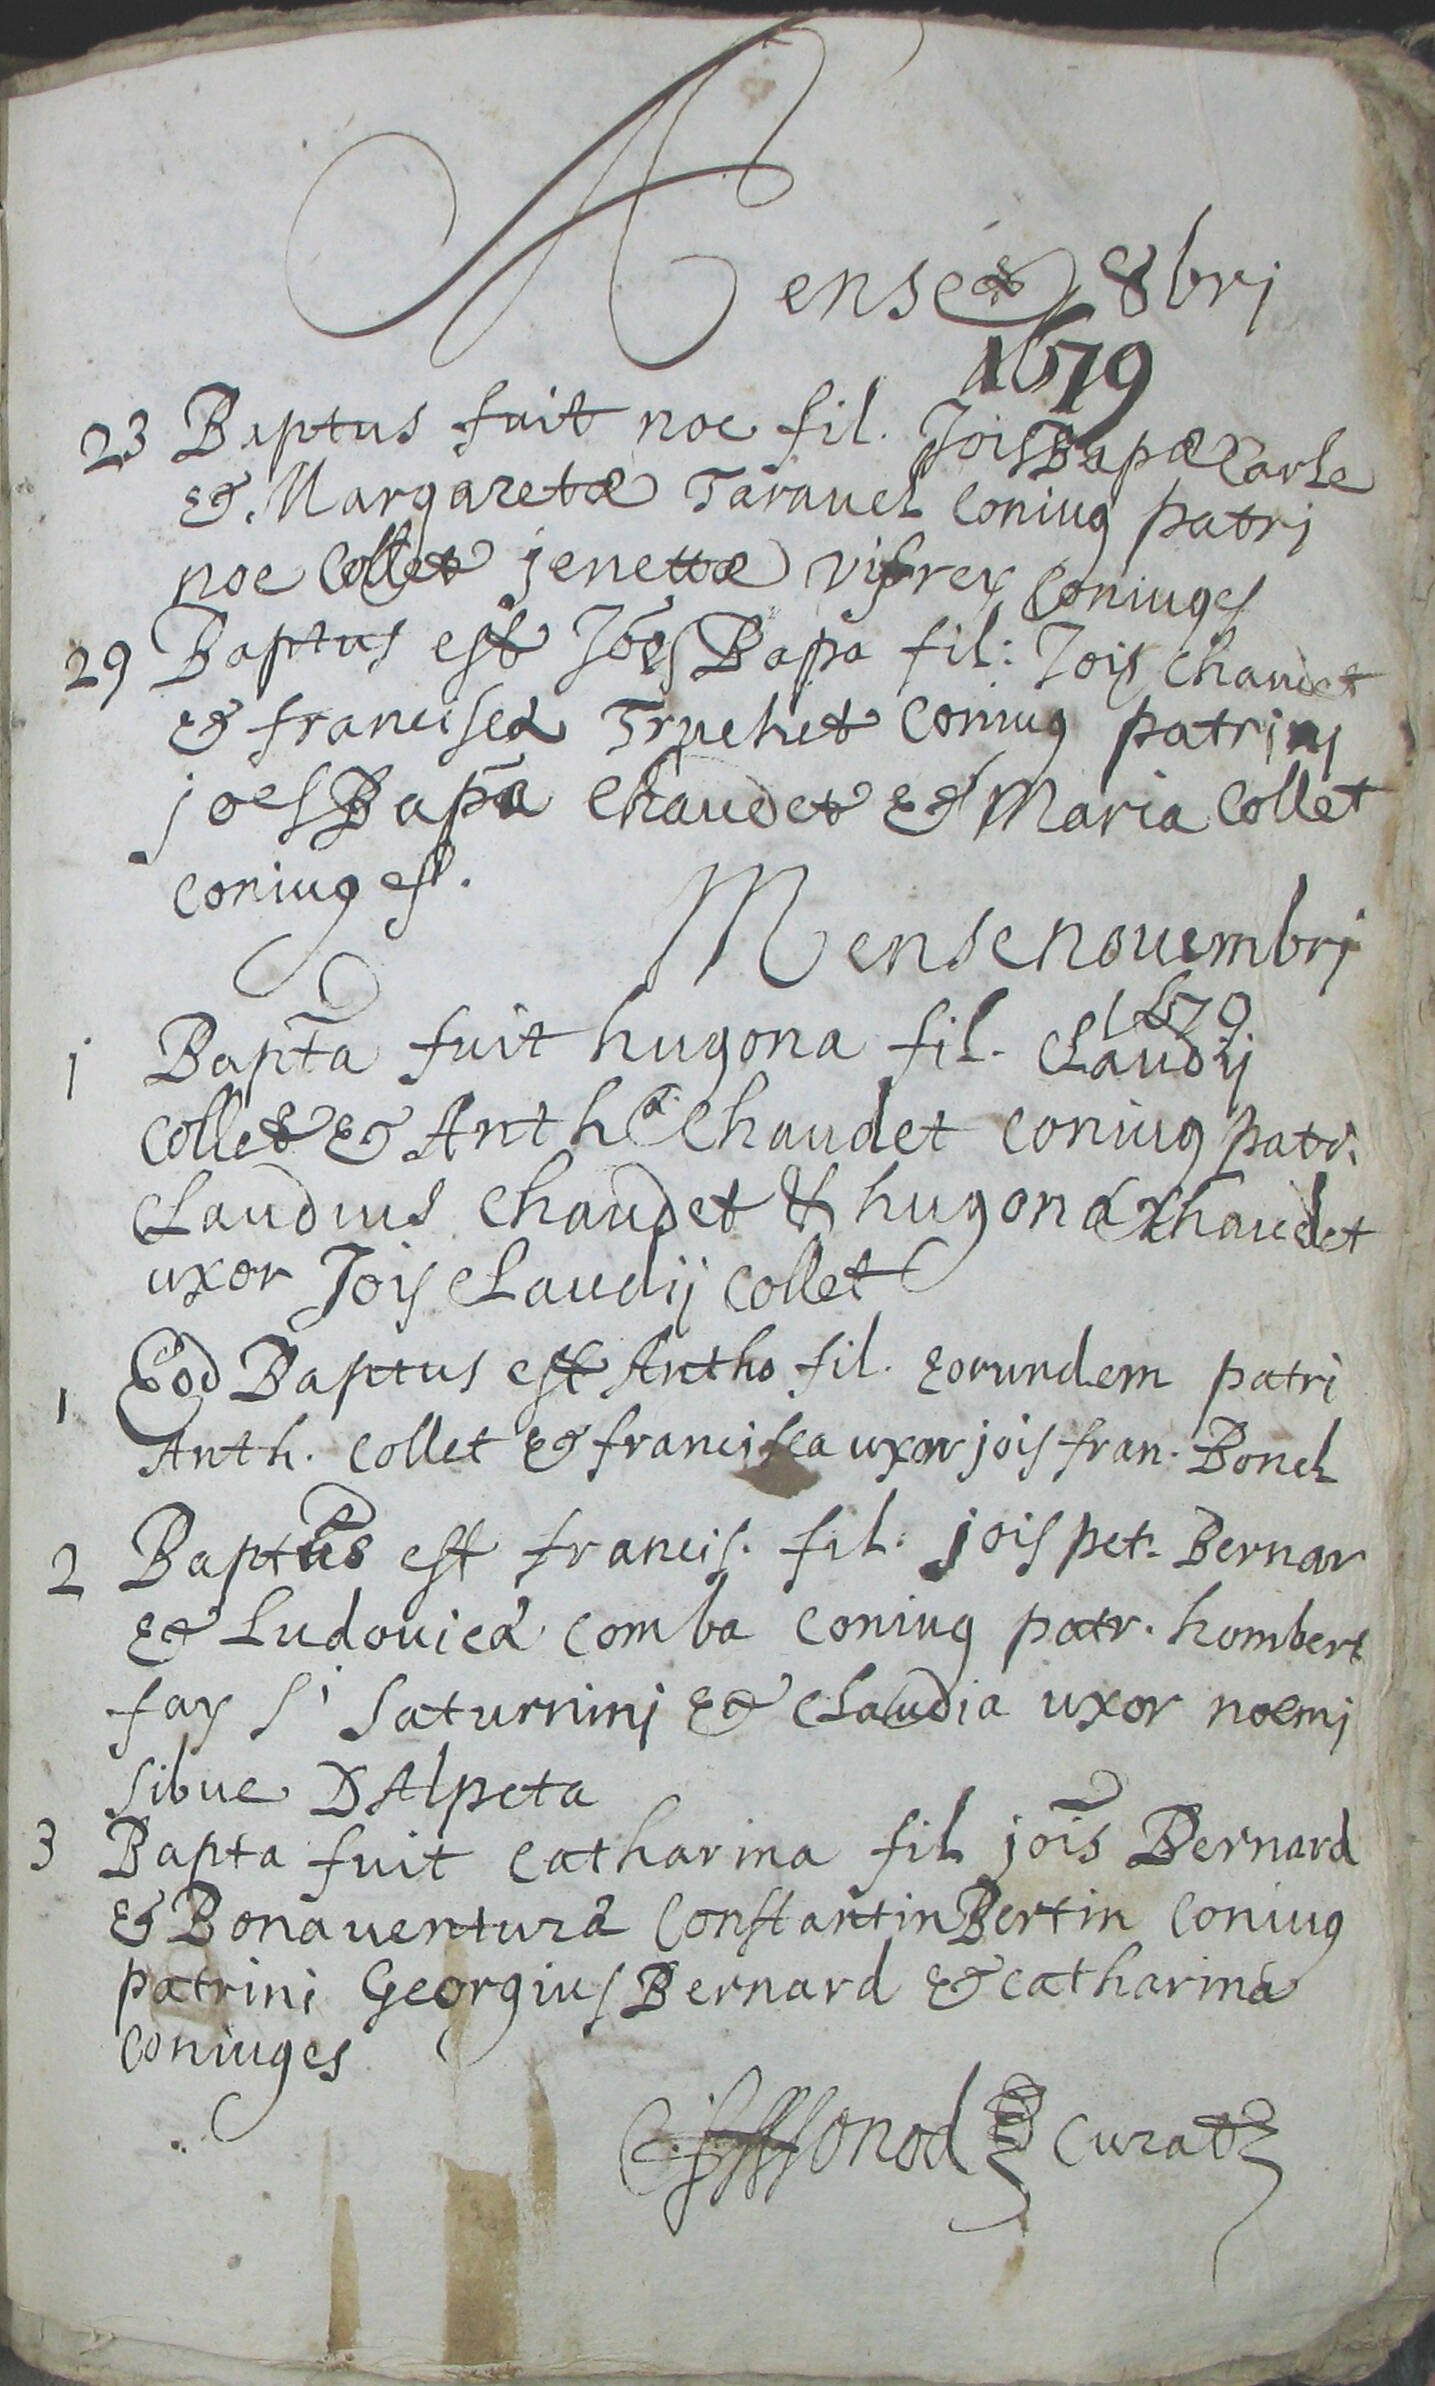 Mense 8bri
1679
23 Baptus fuit noe fil. Jois Bapæ Carle
& Margaretæ Taravel coniug patri
noe Collet jenettæ coniuges
29 Baptus est Joes Bapa fil: Jois chaudet
& francisca Truchet coniug patrini
joes Bapa Chaudet & Maria Collet
coniuges.
Mense nouembri
1679
1 Bapta fuit hugona fil. Claudij
Collet & Antha Chaudet coniug patri.
Claudius Chaudet & hugona Chaudet
uxor Jois Claudij Collet
1 Eod Baptus est Antho fil. eorundem patri
Anth. Collet & francisca uxor jois fran. Bonel
2 Baptus est francis. fil. jois pet. Bernar
& Ludouica comba coniug patr. hombert
fay Si Saturnini & Claudia uxor noemi
sibue D Alpeta
3 Bapta fuit catharina fil jois Bernard
& Bonauentura Constantin Bertin coniug
patrini Georgius Bernard & catharina
coniuges
curat